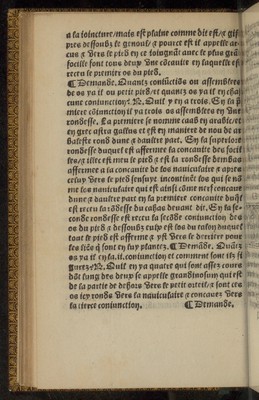 a la ioincture/mais est plaine comme dit est/&
pres dessoubz le genoul/ & pource est il appelle
con & vers le pied en ce ioignāt auec le plus grād
focille sont tous deux vne cōcauite en laquelle est
receu le premier os du pied.
¶ Demande. Quantz coniūctiōs ou assemblees
de os ya il ou petit pied/et quantz os ya il en chas
cune coniunction. R. Quil y en a trois. En la p̄
miere cōiunction il ya trois os assemblees en vne
rondesse. La premiere se nomme caab en arabic/et
en grec astra gallus et est en maniere de nou de ar
baleste rond dune & daultre part. En sa superiore
rondesse duquel est affermee la concauite des focil
les/& illec est meu le pied & est la rondesse dembas
affermee a la concauite de los nauiculaire & apres
cestuy vers le pied sensuyt los qui se nō
me los nauiculaire qui est ainsi cōme nef concaue
dune & daultre part en sa premiere concauite duql̄
est receu la rōdesse du caab deuant dit. En sa
conde rondesse est receu la secōde coniunction des
os du pied & dessoubz cestuy est los du talon duquel
tout le pied est afferme & yst vers le derriere pour
les liēs q̄ sont en luy plantez. ¶ Demāde. Quātz
os ya il en la .ii. coniunction et comment sont ilz fi
gurez. R. Quil en ya quatre qui sont assez cours
dōt lung des deux se appelle grandinosum qui est
de la partie de dehors vers le petit orteil/& sont ces
os icy ronds vers la nauiculaire & concauez vers
la tierce coniunction. ¶ Demande.